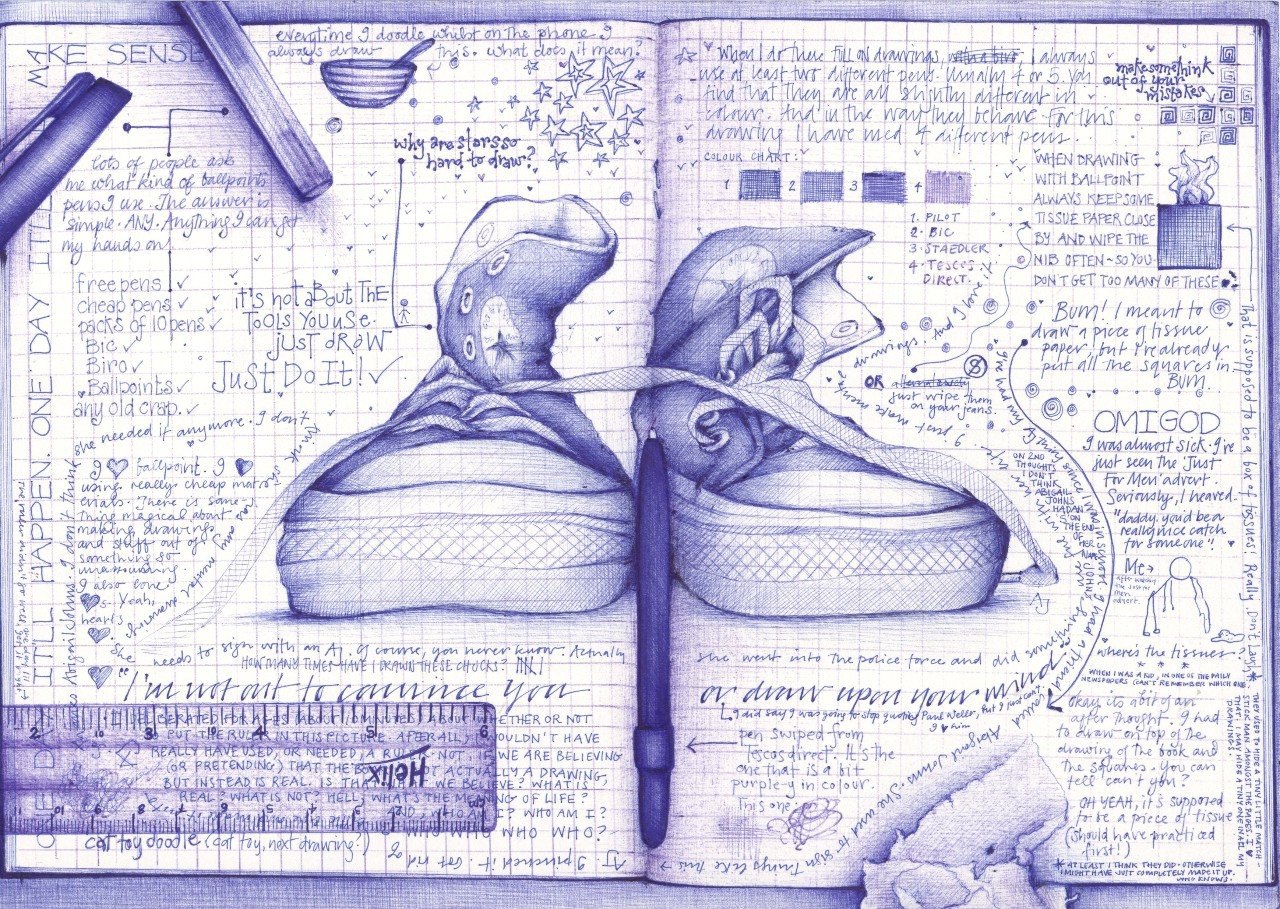 everytime I doodle whilst on the phone I
always draw this. What does it mean?
MAKE SENSE
why are stars so
hard to draw?
lots of people ask
me what kind of ballpoint
pens I use. The answer is
simple. ANY. Anything I can get
my hands on!
free pens ✓
cheap pens ✓
packs of 10 pens ✓
Bic ✓
Biro ✓
Ballpoints ✓
any old crap. ✓
it's not about THE
TOOLS YOU USE.
JUST DRAW
JUST DO IT! ✓
ITLL HAPPEN. ONE DAY ITLL
she needed it anymore. I don't
I ♥ ballpoint. I ♥
using really cheap mat
erials. There is some-
thing magical about
making drawings
and stuff out of
something so
I also love
♥s. Yeah,
hearts
She needs to sign with an AJ. Of course, you never know. Actually
HOW MANY TIMES HAVE I DRAWN THESE CHUCKS?
I'm not out to convince you
DELIBERATED FOR AGES (ABOUT 10 MINUTES) ABOUT WHETHER OR NOT
PUT THE RULER IN THIS PICTURE. AFTERALL, I WOULDN'T HAVE
REALLY HAVE USED, OR NEEDED, A RULER IF WE ARE BELIEVING
(OR PRETENDING) THAT THE NOT ACTUALLY A DRAWING,
BUT INSTEAD IS REAL. IS THAT WHAT WE BELIEVE? WHAT IS
REAL? WHAT IS NOT? HELL, WHAT'S THE MEANING OF LIFE?
AND WHO AM I? WHO AM I?
WHO WHO?
Helix
2 3 4 5 6
cat toy doodle (cat toy, next drawing?)
AJ. I pinched it. Get rid of
When I do these full on drawings, with a biro, I always
use at least two different pens. Usually 4 or 5. You
find that they are all slightly different in
colour. And in the way they behave. For this
drawing I have used 4 different pens.
make something
out of your
mistakes
COLOUR CHART:
1 2 3 4
1. PILOT
2. BIC
3. STAEDLER
4. TESCOS
DIRECT.
WHEN DRAWING
WITH BALLPOINT
ALWAYS KEEP SOME
TISSUE PAPER CLOSE
BY AND WIPE THE
NIB OFTEN ~ SO YOU
DON'T GET TOO MANY OF THESE
OR alternatively
just wipe them
on your jeans.
Bum! I meant to
draw a piece of tissue
paper, but I've already
put all the squares in
Bum.
That is supposed to be a box of tissues! Really. Don't laugh
OMIGOD
I was almost sick. I've
just seen the 'Just
for Men' advert.
Seriously, I heaved.
"daddy, you'd be a
really nice catch
for someone"!
ON 2ND
THOUGHTS
I DON'T
THINK
ABIGAIL
JOHNS
HAD AN S
ON THE END
OF HER
NAME
Me →
After watching
the Just for
Men
advert.
AJ
where's the tissues?
WHEN I WAS A KID, IN ONE OF THE DAILY
NEWSPAPERS (CAN'T REMEMBER WHICH ONE,
she went into the police force and did something
or draw upon your mind
I did say I was going to stop quoting Paul Weller, but I just can't
I ♥ him
pen swiped from
Tescos direct. It's the
one that is a bit
purple-y in colour.
This one
okay, its a bit of an
after thought. I had
to draw on top of the
drawing of the book and
the squares. You can
tell can't you?
OH YEAH, it's supposed
to be a piece of tissue
(should have practiced
first!)
* AT LEAST I THINK THEY DID - OTHERWISE
I MIGHT HAVE JUST COMPLETELY MADE IT UP.
WHO KNOWS.
Abigail Johns. She used to sign
Things like this →